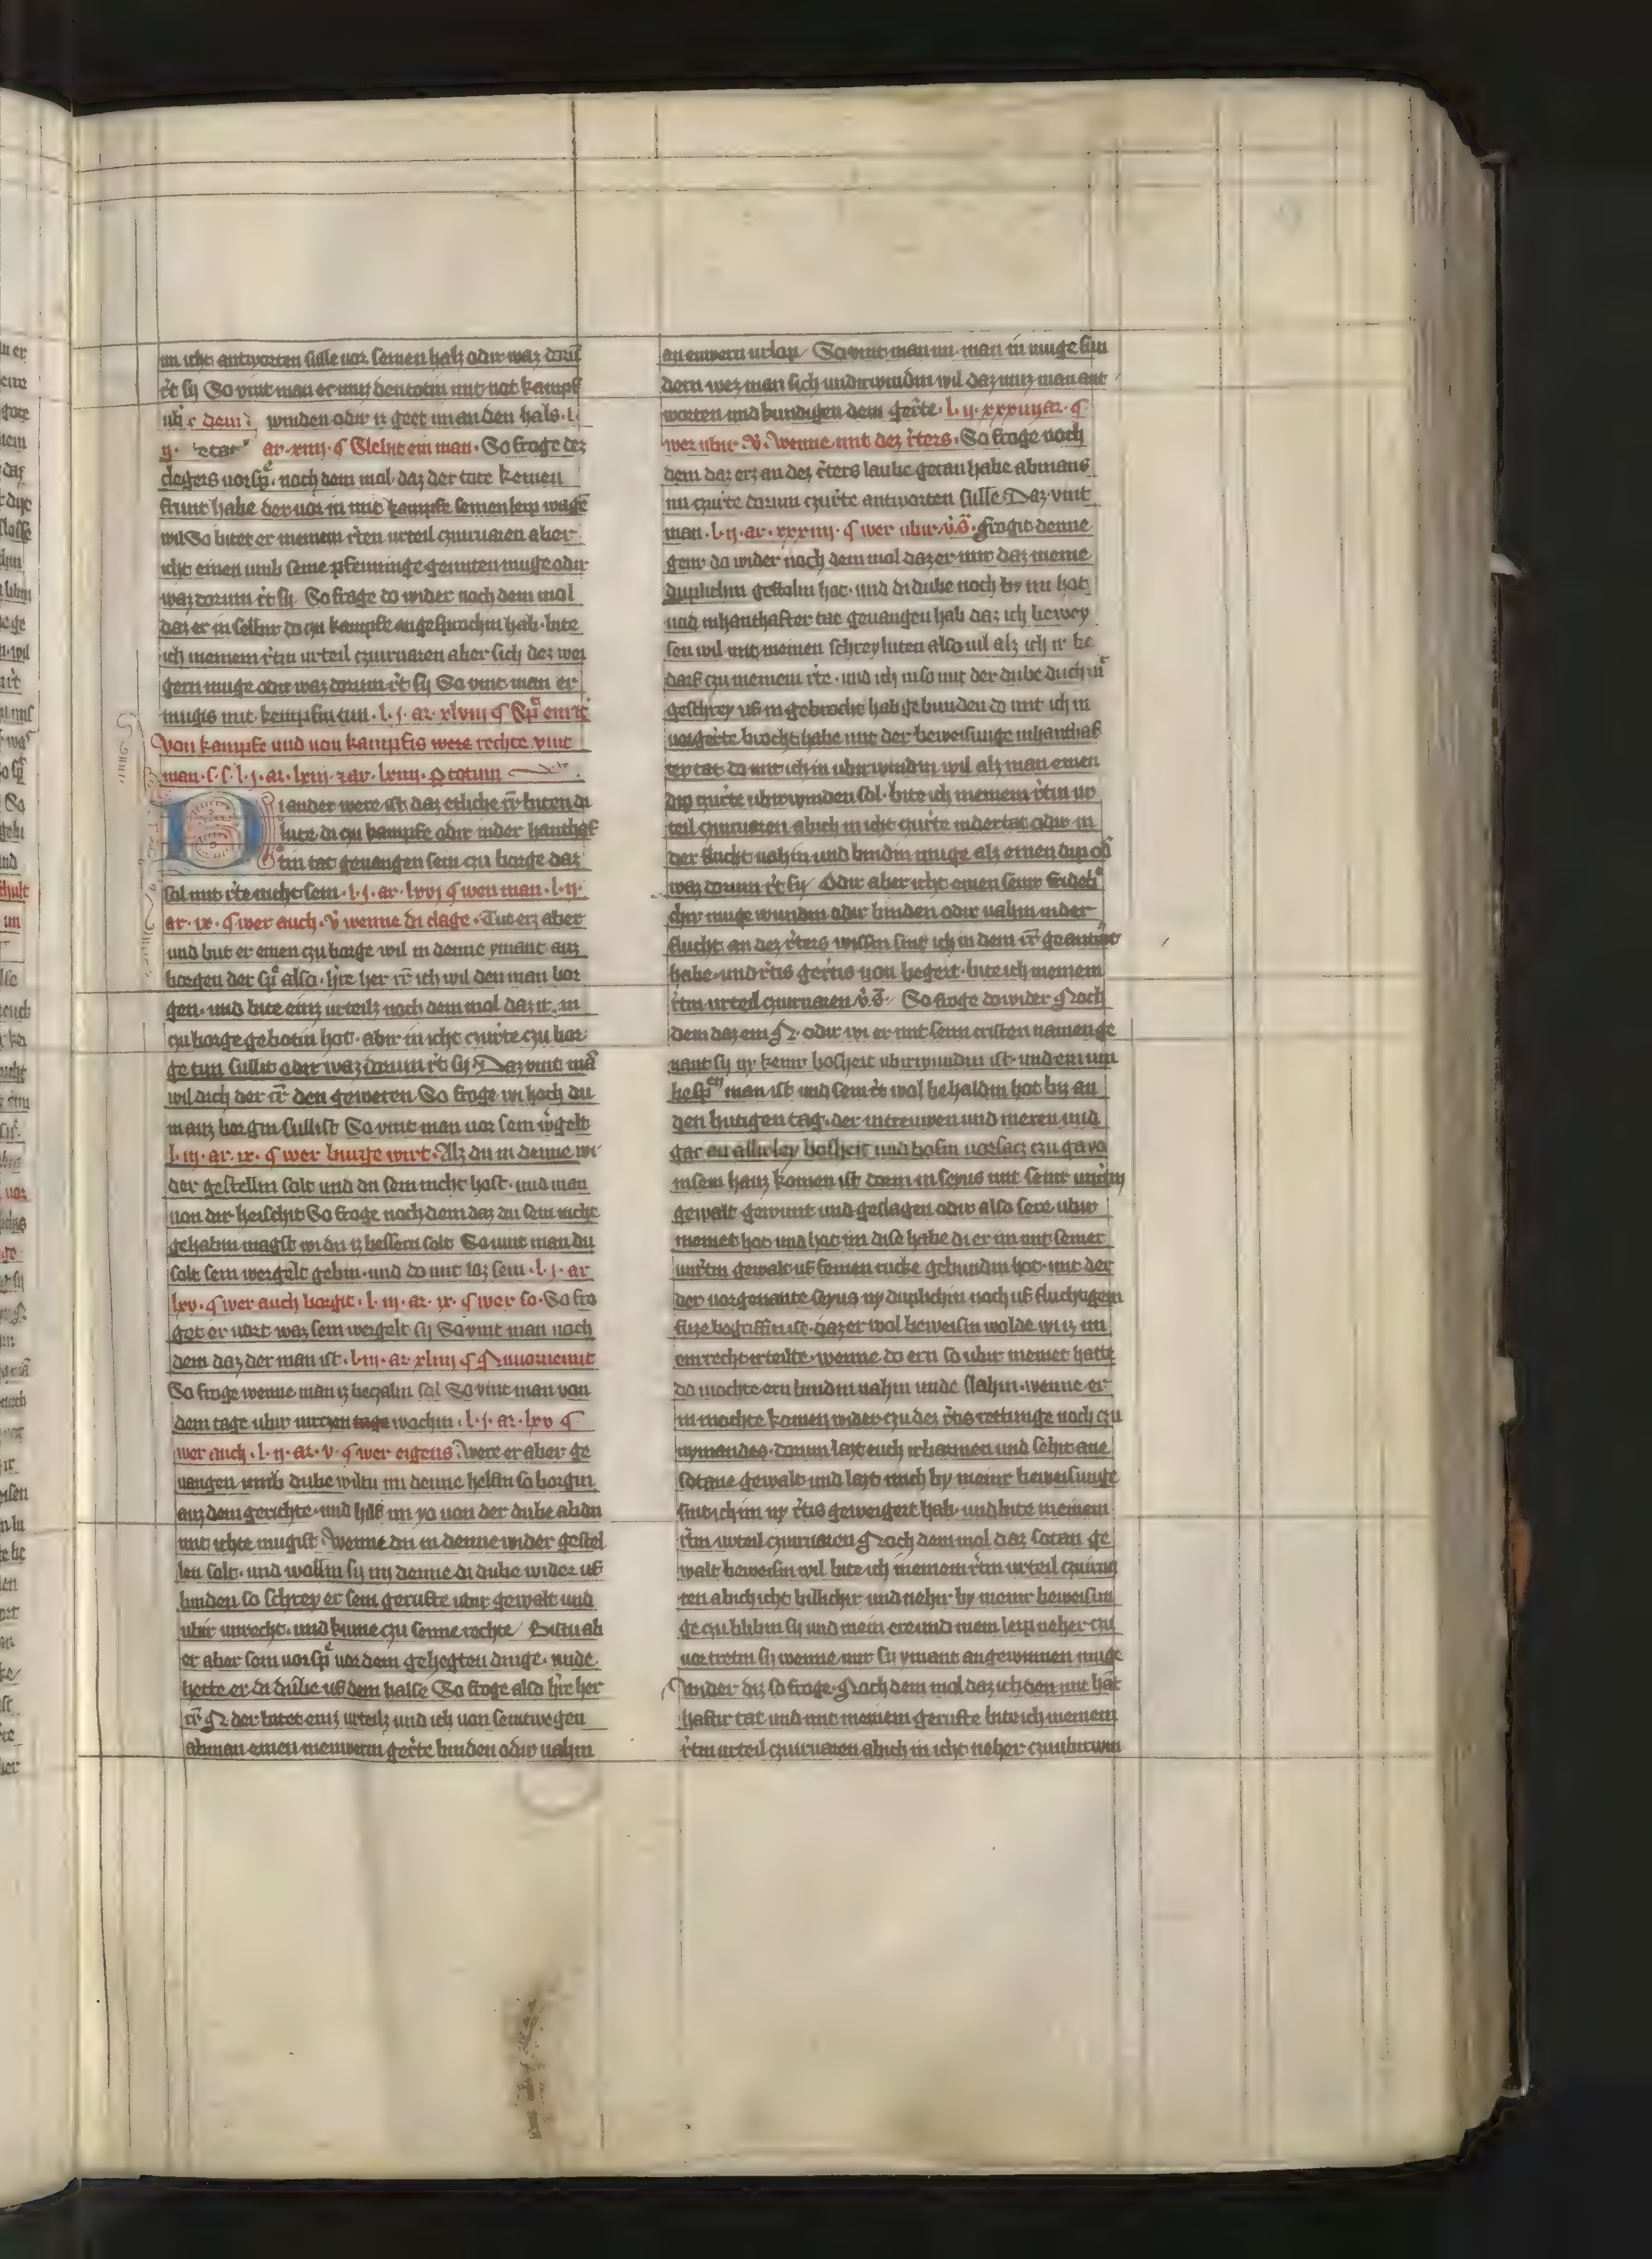 im icht antworten sulle uor seinen halz odir waz dorū
r̄t sy So vint man er muz den totin mit not kampf
winden odir iz geet im an den hals · l ·
ar · xiiij · ¶ Slehit ein man · So froge dez
clegers uorsp̄ · noch dem mol · daz der tote keinen
frunt habe der uor in mit kampfe seinen leip wagē
wil So bitet er meinem r̄ten urteil czuuruaren aber
icht einen umb seine pfenninge genuten muge odir
waz dorum r̄t sy · So froge do wider noch dem mol
daz er in selbir do czu kampfe angesprochin hab · bite
ich meinem r̄tin urteil czuuruaren aber sich dez wei
gern muge odir waz dorum r̄t sy So vint man er
mugis mit kempfin tun · l · j · ar · xlviij ¶
Von kampfe und von kampfis were rechte vint
man · l · j · ar · lxiij · ar · lxiiij · totum
Di ander were ist daz etliche r̄r̄ biten di
lute di czu kampfe odir inder hanthaf
tin tat geuangen sein czu borge daz
sol mit r̄te nicht sein · l · j · ar · lxvj ¶ wen man · l · ij ·
ar · ix · ¶ wer auch · v̄ wenne di clage · Tut erz aber
und but er einen czu borge wil in denne ymant auz
borgen der sp̄ also · h̄re her r̄r̄ ich wil den man bor
gen · und bite einz urteilz noch dem mol daz ir in
czu borge gebotin hot · abir in icht czur̄te czu bor
ge tun sullit odir waz dorum r̄t sy · Daz vint mā
wil dich der r̄r̄ den geweren So froge wi hoch du
in auz borgin sullist So vint man uor sein w̄gelt
l · iij · ar · ix · ¶ wer burge wirt · Alz du in denne wi
der gestellin solt und du sein nicht hast · und man
uon dir heischit So froge noch dem daz du sein nicht
gehabin magst wi du iz bessern solt So vint man du
solt sein wergelt gebin · und do mit loz sein · l · j · ar
lxv · ¶ wer auch borgit · l · iij · ar · ix · ¶ wer so · So fro
get er uort waz sein wergelt sy So vint man noch
dem daz der man ist · l · iij · ar · xliiij ¶ Nuuornemit
So froge wenne man iz beczalin sal So vint man von
dem tage ubir uirczen tage wochin · l · j · ar · lxv ¶
wer auch · l · ij · ar · v · ¶ wer eigens · Were er aber ge
uangen umb dube wiltu im denne helfin so borgin
auz dem gerichte · und hilf im yo uon der dube ab du
mit ichte mugist · Wenne du in denne wider gestel
len solt · und wollin sy im denne di dube wider uf
binden so schrey er sein gerufte ubir gewalt und
ubir unrecht · und kume czu seime rechte Bistu ab
er aber sein uorsp̄ uor dem gehegten dinge · unde
hette er di dube uf dem halse So froge also h̄re her
r̄r̄ N · der bitet einz urteilz und ich von seintwegen
ab man einen inewerm ger̄te binden odir uahin
an ewern urlop So vint man im · man in muge sun
dern wez man sich undirwindin wil daz muz man ant
worten und kundigen dem ger̄te · l · ij · xxxiiij ar · ¶
wer ubir · v̄ · Wenne mit dez r̄ters · So froge noch
dem daz erz an dez r̄ters laube getan habe ab mans
im czur̄te dorum czur̄te antworten sulle Daz vint
man · l · ij · ar · xxxiiij · ¶ wer ubir · v̄ · frogit denne
genir do wider noch dem mol daz er mir daz meine
duplichin gestolin hot · und di dube noch by im hot
und inhanthafter tat geuangen hab daz ich bewey
sen wil mit meinen schreyluten also uil alz ich ir be
darf czu meinem r̄te · und ich in so mit der dube
geschrey uf in gebrocht hab gebunden do mit ich in
uorger̄te brocht habe mit der beweisunge inhanthaf
ter tat do mit ich in ubirwindin wil alz man einen
dip czur̄te ubirwinden sol · bite ich meinem r̄tin ur
teil czuuruaren ab ich in icht czur̄te indertat odir in
der flucht uahin und bindin muge alz einen dip od̄
waz dorum r̄t sy Odir aber icht einen
muge wundin odir binden odir uahin inder
flucht an dez r̄ters wissin sint ich in dem r̄r̄ geantw̄t
habe · und r̄tis ger̄tis uon beger̄t · bite ich meinem
r̄tin urteil czuuruaren v̄ · So froge dowider Noch
dem daz ein N · odir wi er mit seim cristen namen ge
nant sy ny keinir bosheit ubirwundin ist · und ein un
man ist und sein r̄t wol behaldin hot biz an
den hutigen tag · der intreuwen und in eren und
gar an allirley bosheit und bosin uorsacz czu
in sein hauz komen ist dorin in seyus mit seinir unr̄tin
gewalt gewunt und geslagen odir also sere ubir
meinet hot und hot im dise habe di er im mit seiner
unr̄tin gewalt uf seinen rucke gebundin hot · mit der
der uorgenante seyus ny duplichin noch uf fluchtigem
fuze begriffin ist · daz er wol beweisin wolde wi iz im
ein recht irteilte · wenne do ern so ubir meinet hatte
do mochte ern bindin uahin unde slahin · wenne er
in mochte komen wider czu dez r̄tis rettunge noch czu
nymandes · dorum lazt euch irbarmen und sehit ane
sotane gewalt und lazt mich by meinir beweisunge
sint ich im ny r̄tis geweigert hab · und bite meinem
r̄tin urteil czuuruaren Noch dem mol daz sotan ge
walt beweisin wil bite ich meinem r̄tin urteil czuurua
ren ab ich icht billichir und nehir by meinir beweisun
ge czu blibin sy und mein ere und mein leip neher czu
uortretin sy wenne mir sy ymant angewinnen muge
Wider diz so froge · Noch dem mol daz ich den mit hāt
haftir tat und mit meinem gerufte bite ich meinem
r̄tin urteil czuuruaren ab ich in icht neher czuubirwin